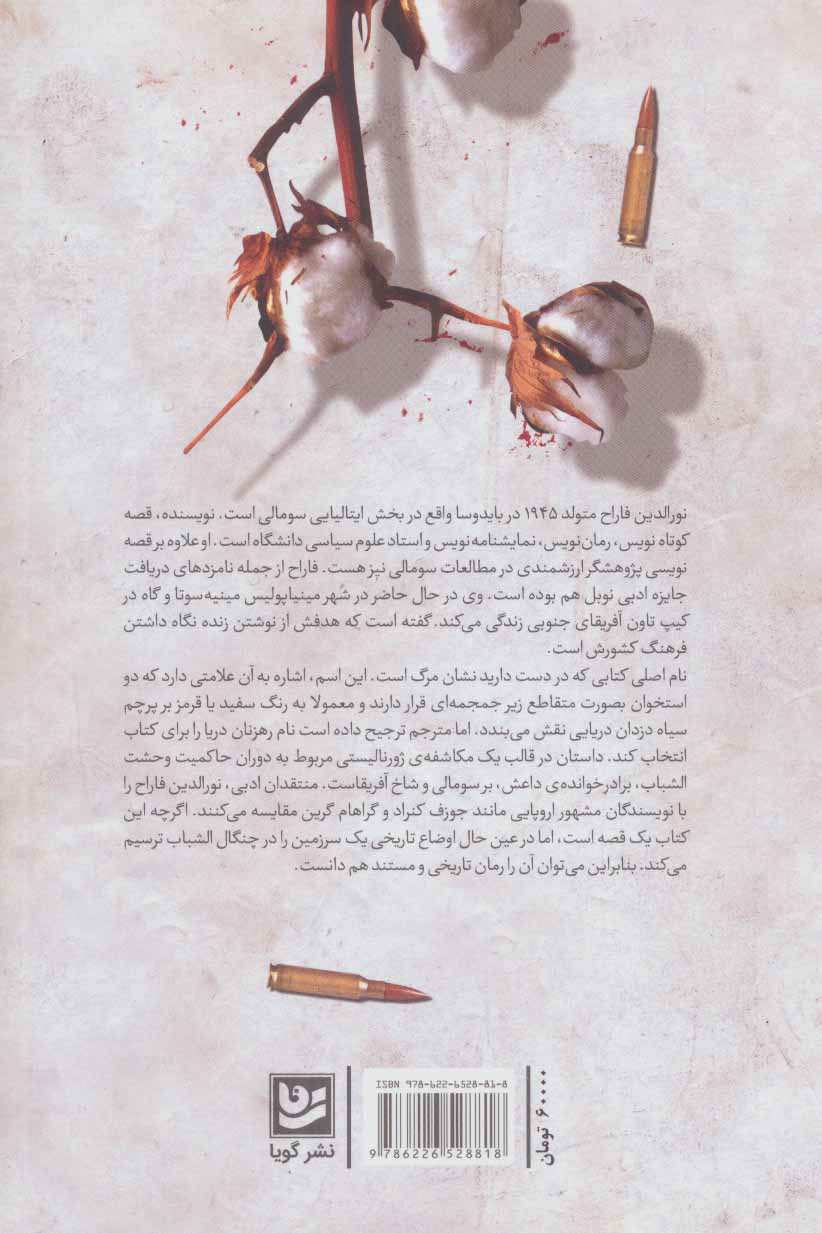 نورالدین فاراح متولد ۱۹۴۵ در بایدوسا واقع در بخش ایتالیایی سومالی است. نویسنده، قصه
کوتاه نویس، رمان‌نویس، نمایشنامه‌نویس و استاد علوم سیاسی دانشگاه است. او علاوه بر قصه
نویسی پژوهشگر ارزشمندی در مطالعات سومالی نیز هست. فاراح از جمله نامزدهای دریافت
جایزه ادبی نوبل هم بوده است. وی در حال حاضر در شهر مینیاپولیس مینیه‌سوتا و گاه در
کیپ تاون آفریقای جنوبی زندگی می‌کند. گفته است که هدفش از نوشتن زنده نگاه داشتن
فرهنگ کشورش است.
نام اصلی کتابی که در دست دارید نشان مرگ است. این اسم، اشاره به آن علامتی دارد که دو
استخوان بصورت متقاطع زیر جمجمه‌ای قرار دارند و معمولا به رنگ سفید یا قرمز بر پرچم
سیاه دزدان دریایی نقش می‌بندد. اما مترجم ترجیح داده است نام رهزنان دریا را برای کتاب
انتخاب کند. داستان در قالب یک مکاشفه‌ی ژورنالیستی مربوط به دوران حاکمیت وحشت
الشباب، برادرخوانده‌ی داعش، بر سومالی و شاخ آفریقاست. منتقدان ادبی، نورالدین فاراح را
با نویسندگان مشهور اروپایی مانند جوزف کنراد و گراهام گرین مقایسه می‌کنند. اگرچه این
کتاب یک قصه است، اما در عین حال اوضاع تاریخی یک سرزمین را در چنگال الشباب ترسیم
می‌کند. بنابراین می‌توان آن را رمان تاریخی و مستند هم دانست.
ISBN 978-622-6528-81-8
9 786226 528818
۶۰۰۰۰ تومان
نشر گویا